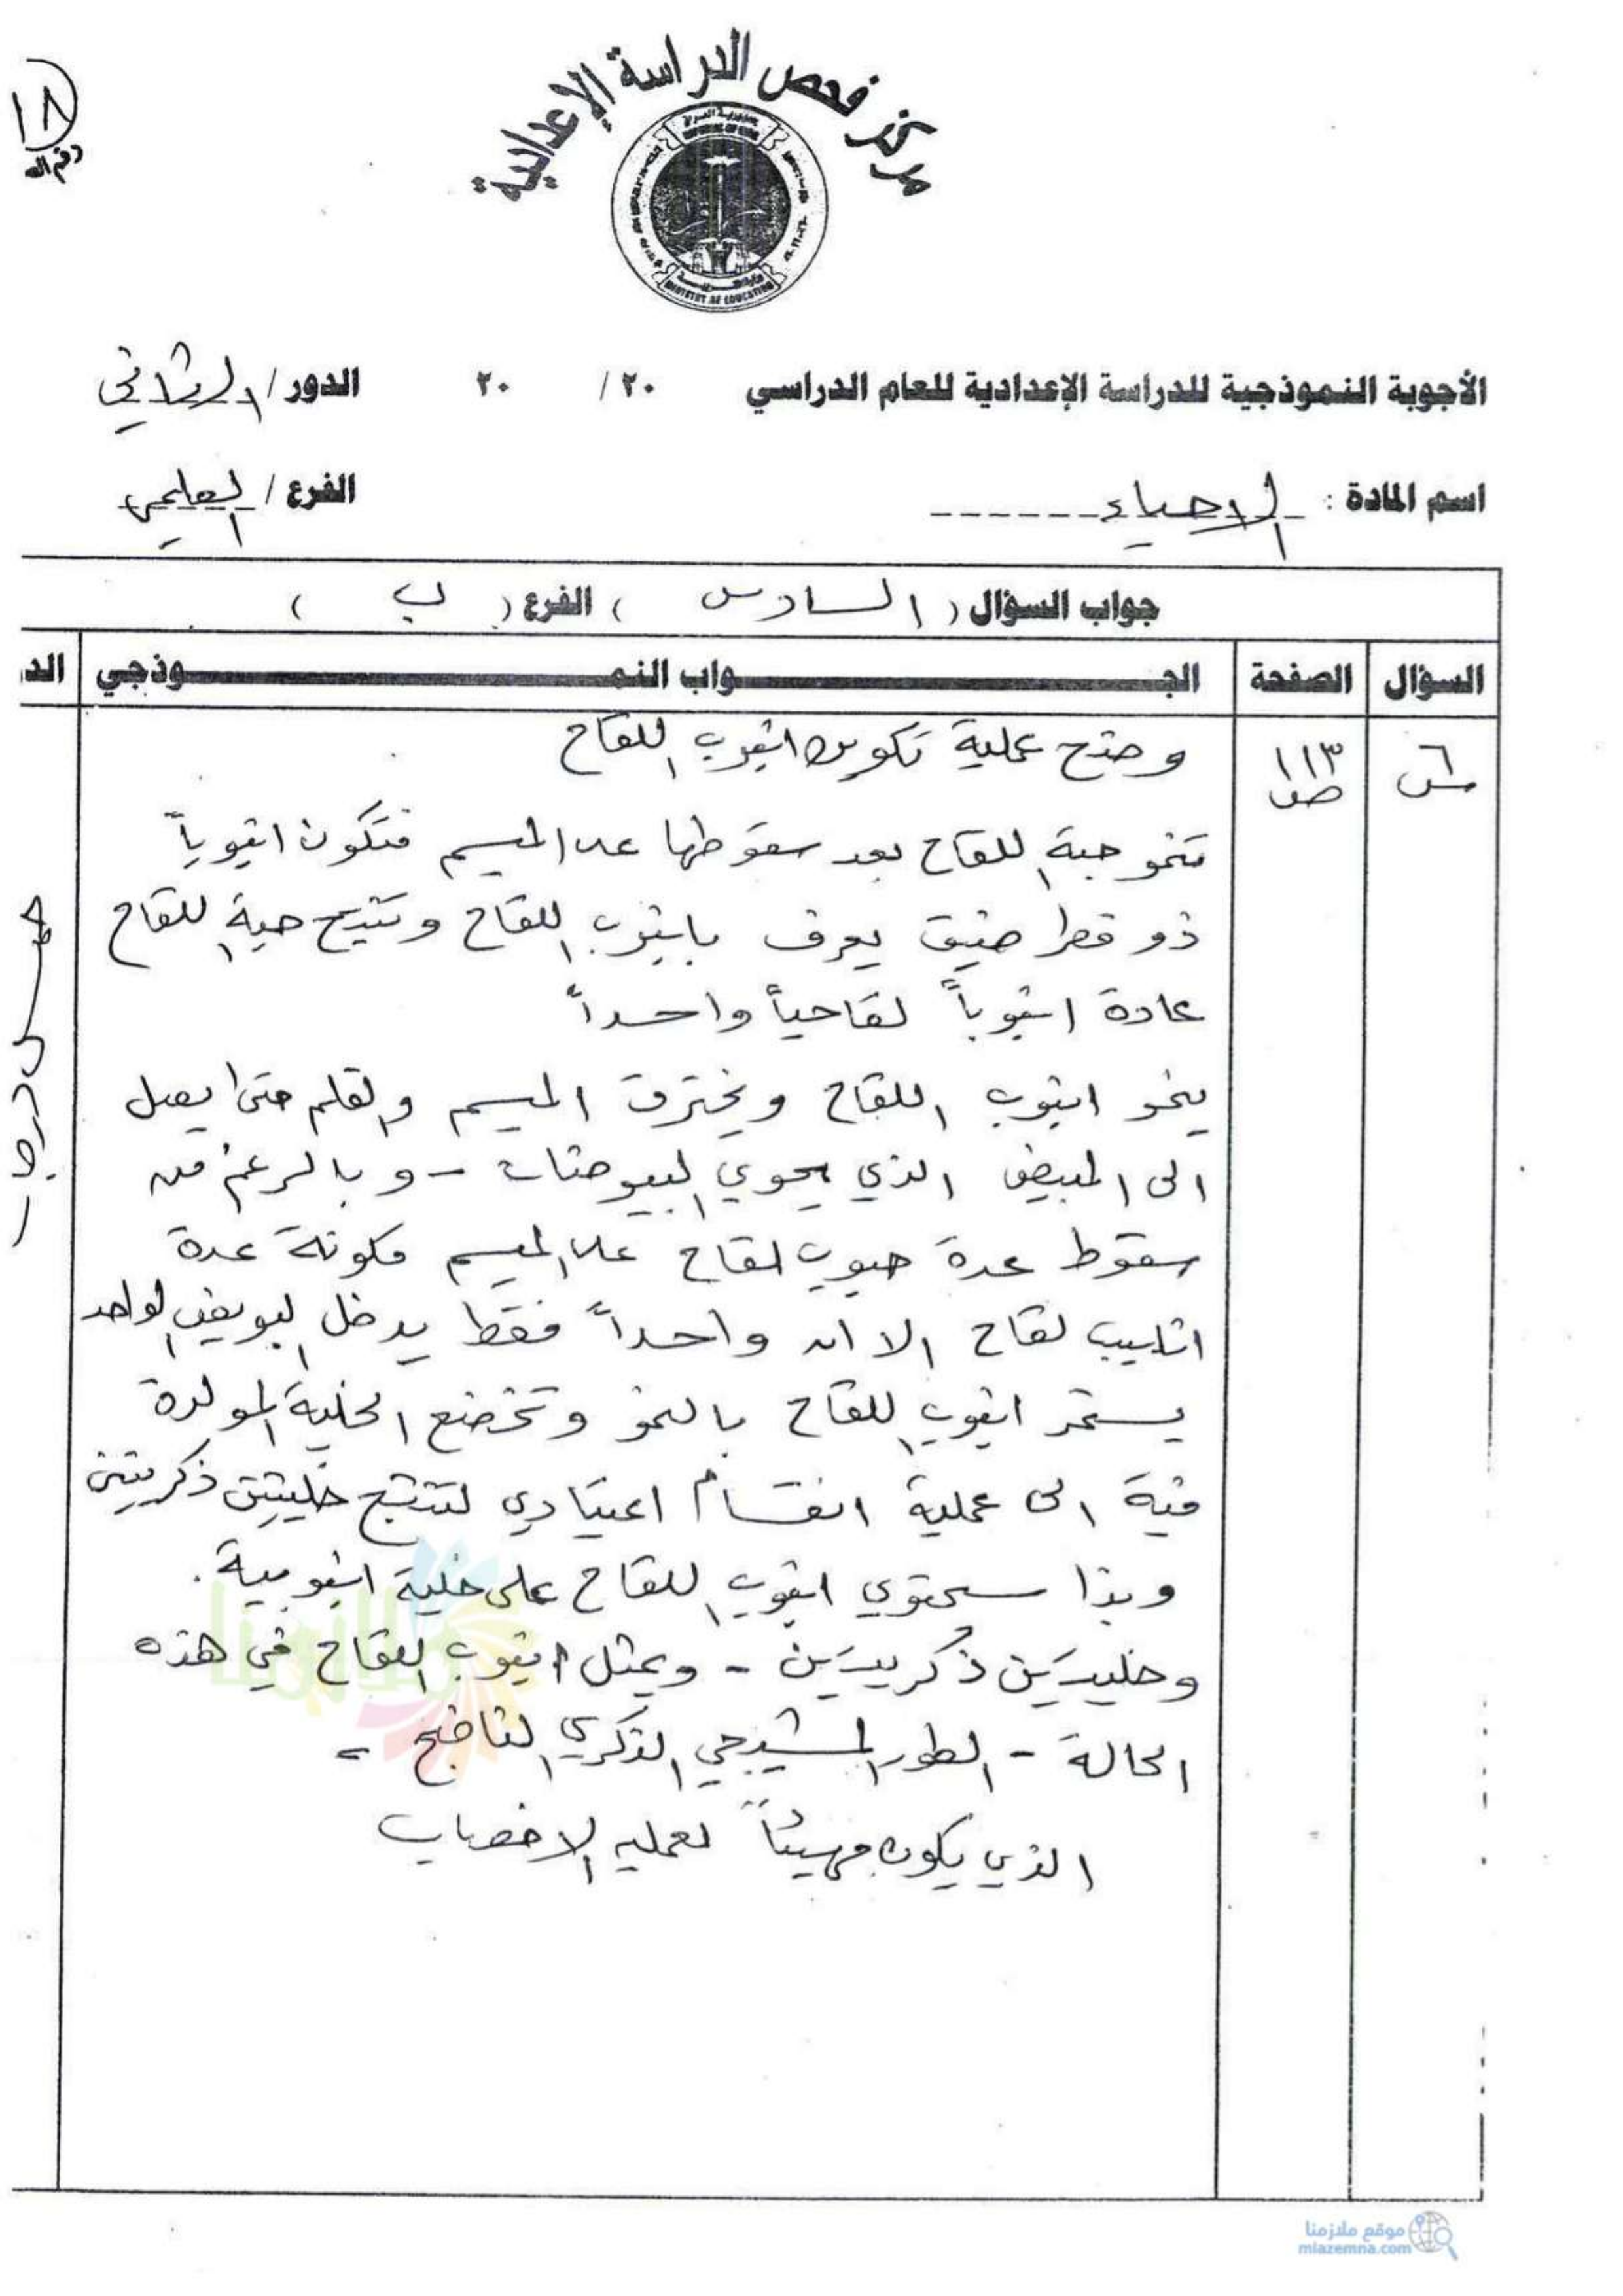 ١٨
رقم الـ
مركز فحص الدراسة الإعدادية
MINISTRY OF EDUCATION
الأجوبة النموذجية للدراسة الإعدادية للعام الدراسي ٢٠ / ٢٠ الدور / الثاني
اسم المادة : الاحياء الفرع / العلمي
جواب السؤال ( السادس ) الفرع ( ب )
السؤال الصفحة الجـواب النمـوذجي الد
س٦ ١١٣ ص وضح عملية تكوين انبوب اللقاح
تنمو حبة اللقاح بعد سقوطها على الميسم فتكون انبوباً
ذو قطر ضيق يعرف بانبوب اللقاح وتنتج حبة اللقاح
عادة انبوباً لقاحياً واحداً
ينمو انبوب اللقاح ويخترق الميسم والقلم حتى يصل
الى المبيض الذي يحوي البيوضات - وبالرغم من
سقوط عدة حبوب لقاح على الميسم مكونة عدة
انابيب لقاح الا ان واحداً فقط يدخل البويض الواحد
يستمر انبوب اللقاح بالنمو وتخضع الخلية المولدة
فية الى عملية انقسام اعتيادي لتنتج خليتين ذكريتين
وبذا سيحتوي انبوب اللقاح على خلية انبوبية.
وخليتين ذكريتين - ويمثل انبوب اللقاح في هذه
الحالة - الطور المشيجي الذكري الناضج -
الذي يكون مهيئاً لعملية الاخصاب
خمس درجات
موقع ملازمنا
mlazemna.com